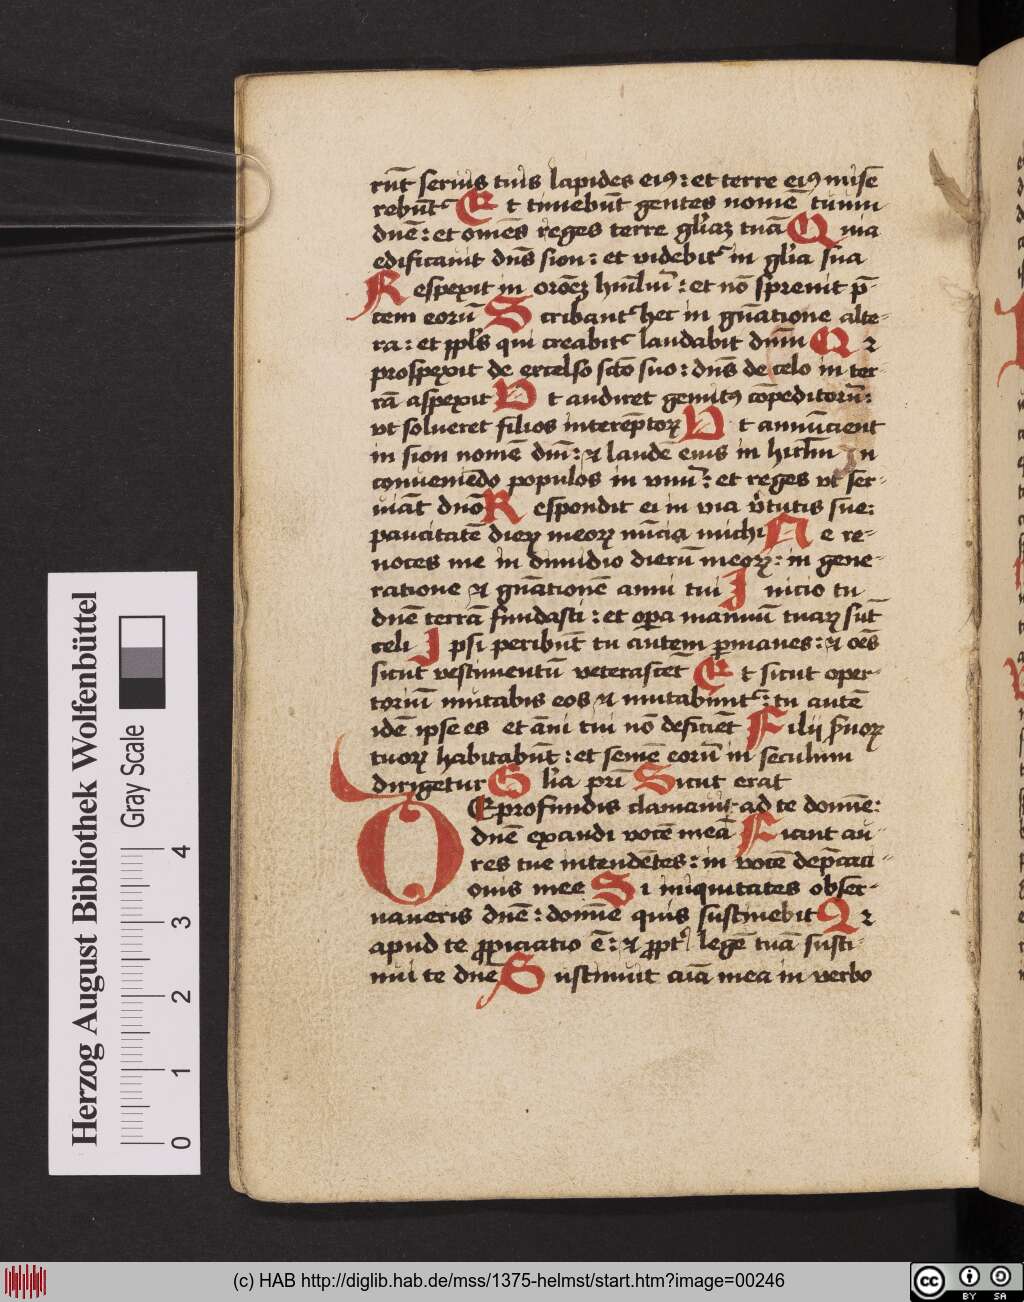 rūt seruis tuis lapides eiꝰ : et terre eiꝰ mise
rebūt᷑ Et timebūt gentes nomē tuum
dn̄e : et om̄es reges terre glīaꝫ tuā Quia
edificauit dn̄s sion : et videbit᷑ in glīa sua
Respexit in oroēꝫ humiliū : et nō spreuit p̄-
cem eorū Scribant᷑ hec in gn̄atione alte-
ra : et ppl̄s qui creabit᷑ laudabit dn̄m Qꝛ
prospexit de excelso scō suo : dn̄s de celo in ter-
rā aspexit Vt audiret gemitꝰ cōpeditorū :
vt solueret filios interēptoꝝ Vt annūcient
in sion nomē dn̄i : ⁊ laudē eius in hierl̄m In
conueniēdo populos in vnū : et reges vt ser-
uiāt dnō Respondit ei in via v̓tutis sue :
paucitatē dieꝝ meoꝝ nūcia michi Ne re-
uoces me in dimidio dierū meoꝝ : in gene-
ratione ⁊ gn̄ationē anni tui Inicio tu
dn̄e terrā fundasti : et oꝑa manuū tuaꝝ sūt
celi Ipsi peribūt tu autem ꝑmanes : ⁊ oēs
sicut vestimentū veterascēt Et sicut oper-
toriū mutabis eos ⁊ mutabunt᷑ : tu autē
idē ipse es et āni tui nō deficiēt Filij s̓uoꝝ
tuoꝝ habitabūt : et semē eorū in seculum
dirigetur Glīa pr̄i Sicut erat
DE profundis clamaui ad te domīe :
dn̄e exaudi vocē meā Fiant au-
res tue intendētes : in vocē dep̄caci-
onis mee Si iniquitates obser-
uaueris dn̄e : domīe quis sustinebit Qꝛ
apud te ꝓpiciatio ē : ⁊ ꝓpt᷑ legē tuā susti-
nui te dn̄e Sustinuit aīa mea in verbo
Herzog August Bibliothek Wolfenbüttel
Gray Scale
0 1 2 3 4
(c) HAB http://diglib.hab.de/mss/1375-helmst/start.htm?image=00246
cc BY SA